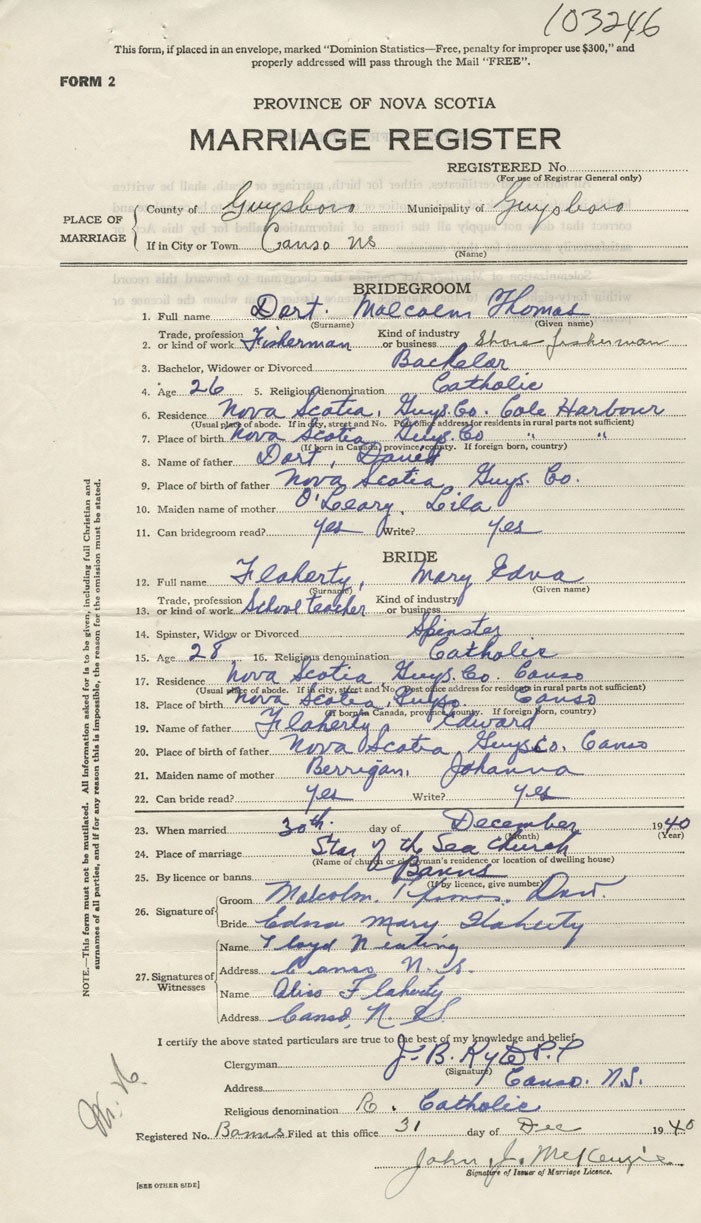 103246
This form, if placed in an envelope, marked "Dominion Statistics—Free, penalty for improper use $300," and
properly addressed will pass through the Mail "FREE".
FORM 2
PROVINCE OF NOVA SCOTIA
MARRIAGE REGISTER
REGISTERED No.
(For use of Registrar General only)
PLACE OF MARRIAGE
County of Guysboro Municipality of Guysboro
If in City or Town Canso NS
(Name)
BRIDEGROOM
1. Full name Dort. Malcolm Thomas
(Surname) (Given name)
2. Trade, profession or kind of work Fisherman Kind of industry or business Shore fisherman
3. Bachelor, Widower or Divorced Bachelor
4. Age 26 5. Religious denomination Catholic
6. Residence Nova Scotia, Guys. Co. Cole Harbour
(Usual place of abode. If in city, street and No. Post office address for residents in rural parts not sufficient)
7. Place of birth Nova Scotia Guys. Co " "
(If born in Canada, province, county. If foreign born, country)
8. Name of father Dort,
9. Place of birth of father Nova Scotia, Guys. Co.
10. Maiden name of mother O'Leary, Lila
11. Can bridegroom read? yes Write? yes
BRIDE
12. Full name Flaherty, Mary Edna
(Surname) (Given name)
13. Trade, profession or kind of work School teacher Kind of industry or business
14. Spinster, Widow or Divorced Spinster
15. Age 28 16. Religious denomination Catholic
17. Residence Nova Scotia, Guys. Co. Canso
(Usual place of abode. If in city, street and No. Post office address for residents in rural parts not sufficient)
18. Place of birth Nova Scotia, Canso
(If born in Canada, province, county. If foreign born, country)
19. Name of father Flaherty, Edward
20. Place of birth of father Nova Scotia Guys Co. Canso
21. Maiden name of mother Berrigan, Johanna
22. Can bride read? yes Write? yes
23. When married 30th. day of December 1940
(Month) (Year)
24. Place of marriage Star of the Sea Church
(Name of church or clergyman's residence or location of dwelling house)
25. By licence or banns Banns
(If by licence, give number)
26. Signature of Groom Malcolm. Thomas. Dort.
Bride Edna Mary Flaherty
27. Signatures of Witnesses
Name Floyd
Address Canso N. S.
Name Flaherty
Address Canso, N S
I certify the above stated particulars are true to the best of my knowledge and belief
Clergyman J. B. P.P
(Signature)
Address Canso. N.S.
Religious denomination R. Catholic
Registered No. Banns Filed at this office 31 day of Dec 1940
John J. McKenzie
Signature of Issuer of Marriage Licence.
[SEE OTHER SIDE]
NOTE.—This form must not be mutilated. All information asked for is to be given, including full Christian and
surnames of all parties, and if for any reason this is impossible, the reason for the omission must be stated.